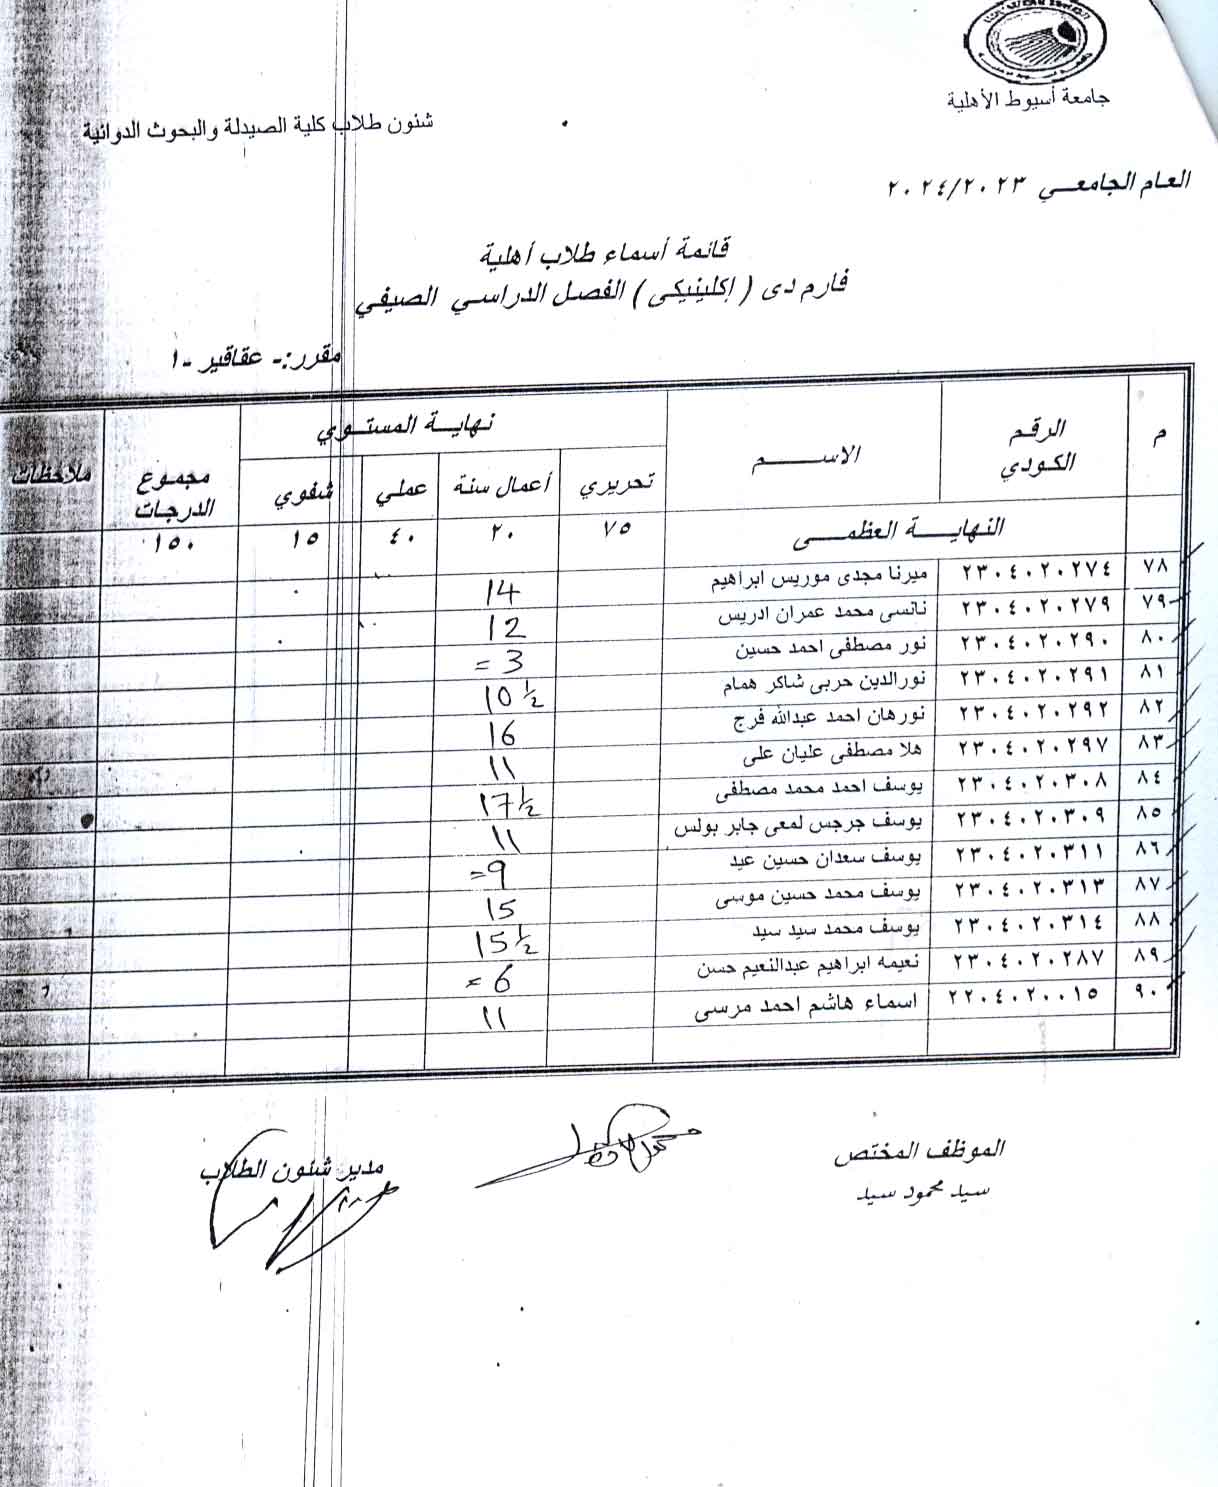 جامعة أسيوط الأهلية
شئون طلاب كلية الصيدلة والبحوث الدوائية
العام الجامعي ٢٠٢٤/٢٠٢٣
قائمة أسماء طلاب أهلية
فارم دى ( إكلينيكى ) الفصل الدراسي الصيفي
مقرر:- عقاقير -١
م الرقم الكودي الاســـم نهاية المستوي مجموع الدرجات ملاحظات
تحريري أعمال سنة عملي شفوي
النهاية العظمى ٧٥ ٢٠ ٤٠ ١٥ ١٥٠
٧٨ ٢٣٠٤٠٢٠٢٧٤ ميرنا مجدى موريس ابراهيم 14
٧٩ ٢٣٠٤٠٢٠٢٧٩ نانسى محمد عمران ادريس 12
٨٠ ٢٣٠٤٠٢٠٢٩٠ نور مصطفى احمد حسين = 3
٨١ ٢٣٠٤٠٢٠٢٩١ نورالدين حربى شاكر همام 10 ½
٨٢ ٢٣٠٤٠٢٠٢٩٢ نورهان احمد عبدالله فرج 16
٨٣ ٢٣٠٤٠٢٠٢٩٧ هلا مصطفى عليان على 11
٨٤ ٢٣٠٤٠٢٠٣٠٨ يوسف احمد محمد مصطفى 17 ½
٨٥ ٢٣٠٤٠٢٠٣٠٩ يوسف جرجس لمعى جابر بولس 11
٨٦ ٢٣٠٤٠٢٠٣١١ يوسف سعدان حسين عيد = 9
٨٧ ٢٣٠٤٠٢٠٣١٣ يوسف محمد حسين موسى 15
٨٨ ٢٣٠٤٠٢٠٣١٤ يوسف محمد سيد سيد 15 ½
٨٩ ٢٣٠٤٠٢٠٢٨٧ نعيمه ابراهيم عبدالنعيم حسن = 6
٩٠ ٢٢٠٤٠٢٠٠١٥ اسماء هاشم احمد مرسى 11
الموظف المختص
سيد محمود سيد
مدير شئون الطلاب